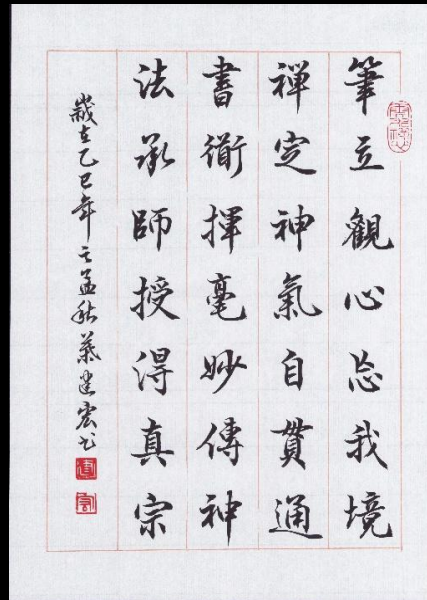 筆立觀心忘我境
禪定神氣自貫通
書術揮毫妙傳神
法承師授得真宗
歲在乙巳年之孟秋建宏书